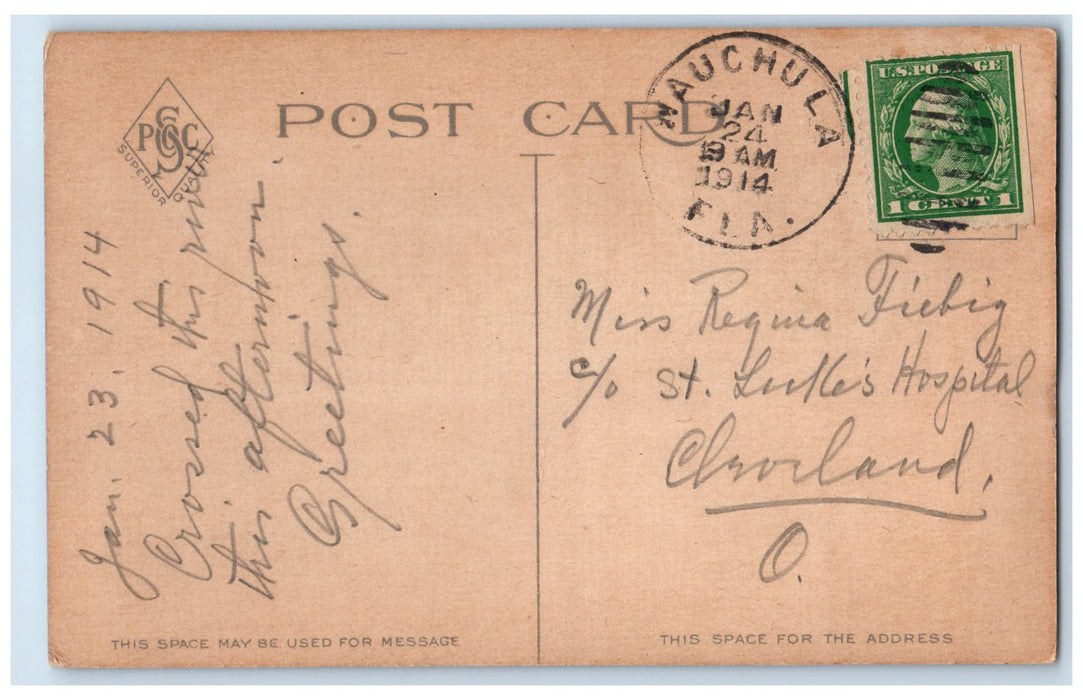 P S C
SUPERIOR QUALITY
POST CARD
WAUCHULA
JAN
24
9 AM
1914
FLA.
U.S. POSTAGE
1 CENT 1
Jan. 23, 1914
Crossed this river
this afternoon.
Greetings.
Miss Regina Fiebig
c/o St. Luke's Hospital
Cleveland,
O.
THIS SPACE MAY BE USED FOR MESSAGE
THIS SPACE FOR THE ADDRESS